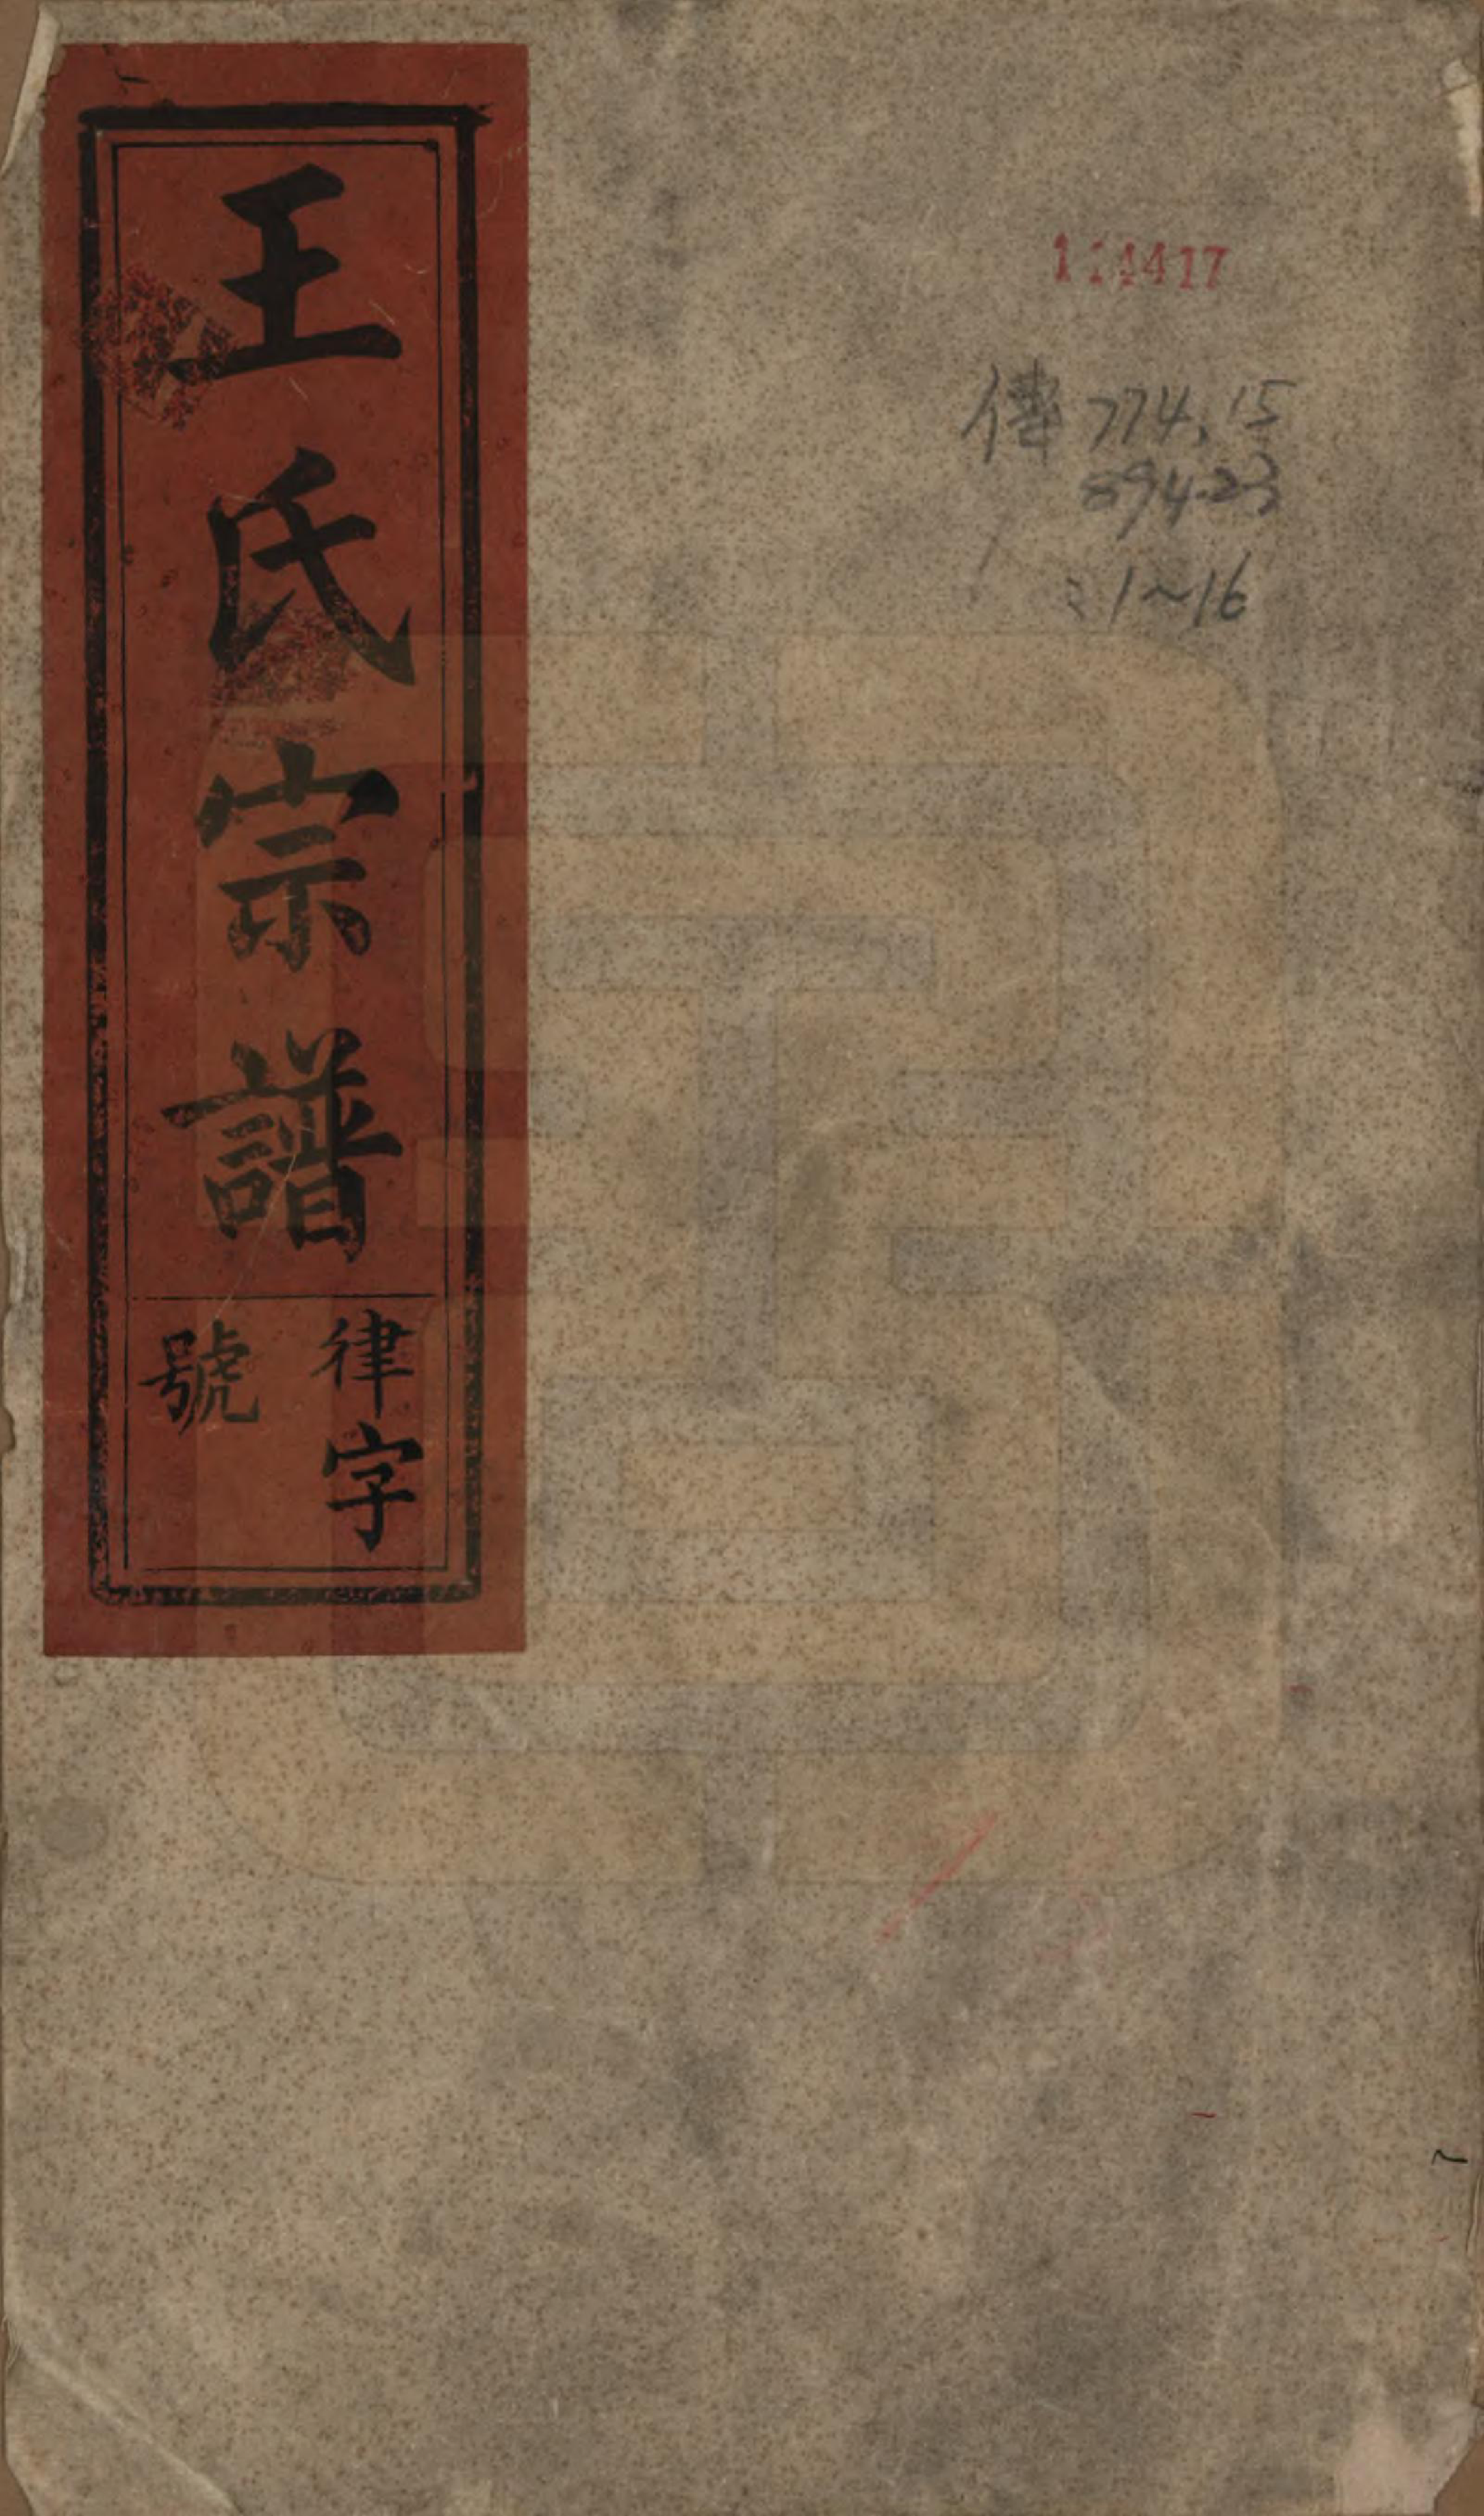 王氏宗譜
律字
號
傳 774.15
894-23
:1~16